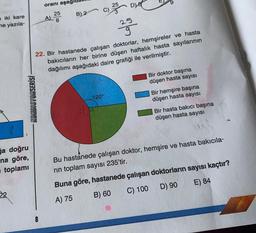 oranı
iki kare
ne yazıla-
A) 25/6
B) 2
C) 25
D)
25
9
22. Bir hastanede çalışan doktorlar, hemşireler ve hasta
bakıcıların her birine düşen haftalık hasta sayılarının
dağılımı aşağıdaki daire grafiği ile verilmiştir.
120°
Bir doktor başına
düşen hasta sayısı
Bir hemşire başına
düşen hasta sayısı
Bir hasta bakıcı başına
düşen hasta sayısı
ğa doğru
na göre,
toplamı
22
Bu hastanede çalışan doktor, hemşire ve hasta bakıcıla-
rın toplam sayısı 235'tir.
Buna göre, hastanede çalışan doktorların sayısı kaçtır?
A) 75 B) 60 C) 100 D) 90 E) 84
8